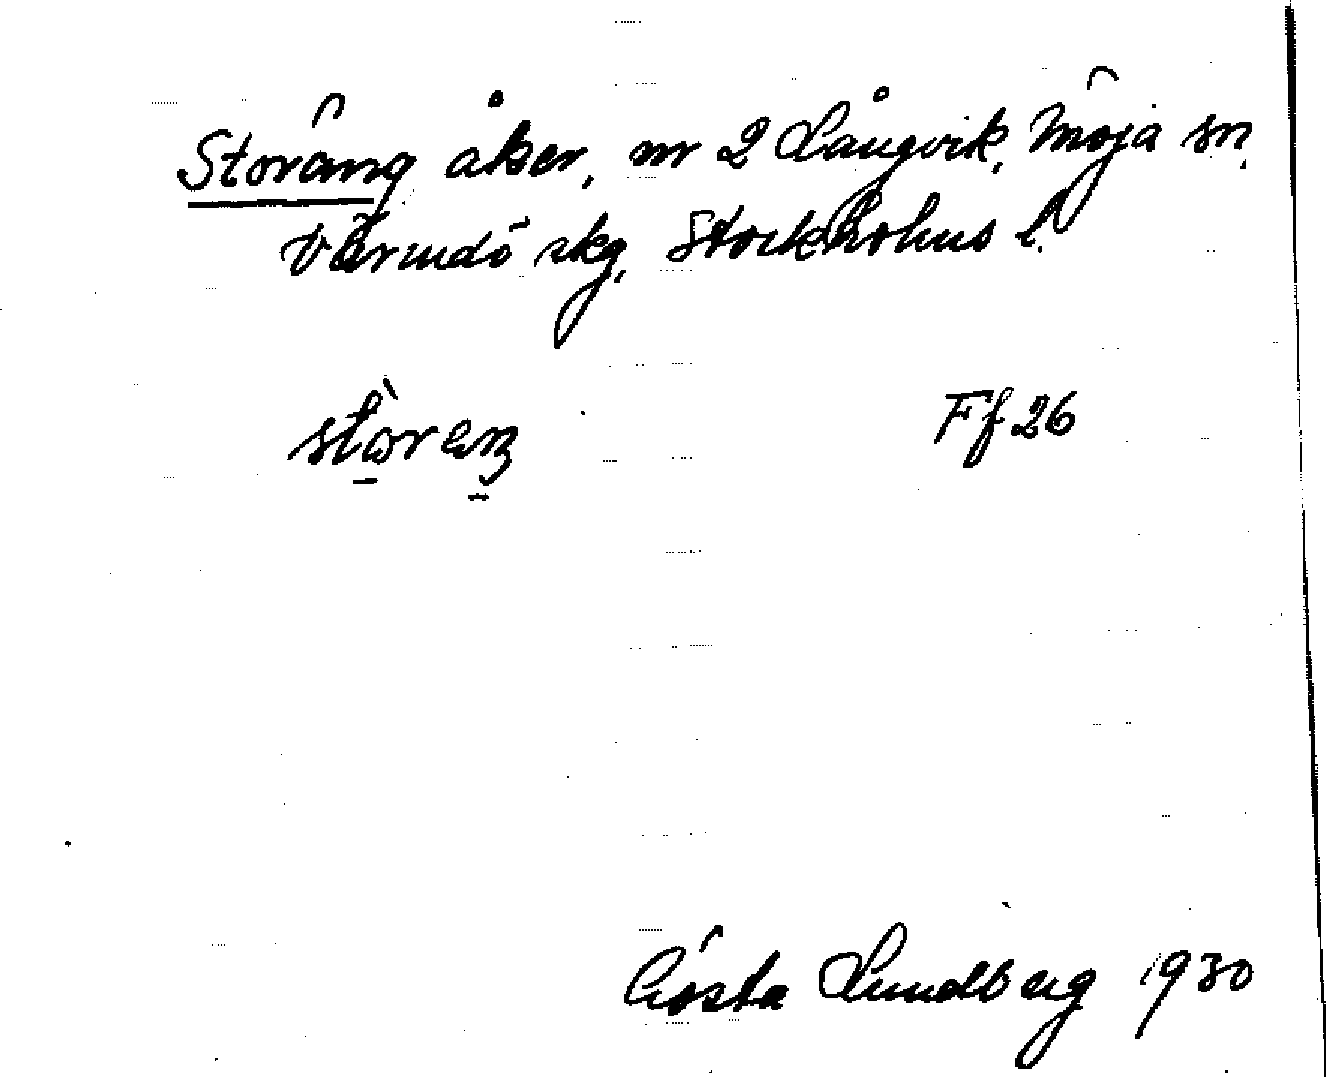 Storäng åker, nr 2 Långvik, Möja sn,
Värmdö skg, Stockholms l.
Ff 26
Gösta Lundberg 1930